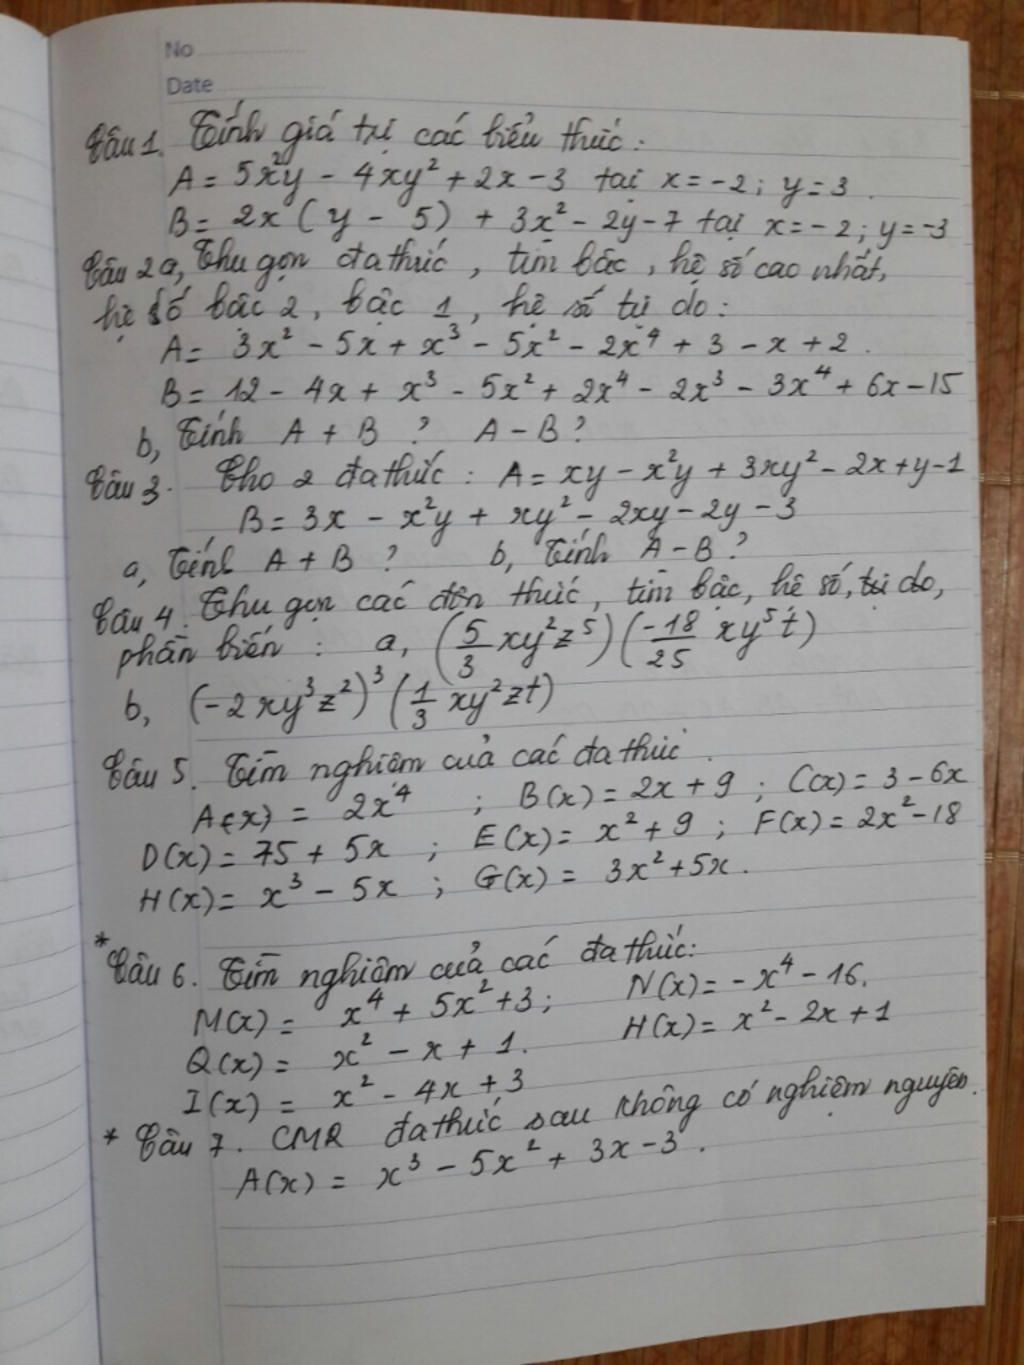 No
Date
Câu 1. Tính giá trị các biểu thức :
A = 5x²y - 4xy² + 2x - 3 tại x = -2 ; y = 3 .
B = 2x ( y - 5) + 3x² - 2y - 7 tại x = - 2 ; y = -3
Câu 2a, Thu gọn đa thức , tìm bậc , hệ số cao nhất,
hệ số bậc 2 , bậc 1 , hệ số tự do :
A = 3x² - 5x + x³ - 5x² - 2x⁴ + 3 - x + 2 .
B = 12 - 4x + x³ - 5x² + 2x⁴ - 2x³ - 3x⁴ + 6x - 15
b, Tính A + B ? A - B ?
Câu 3. Cho 2 đa thức : A = xy - x²y + 3xy² - 2x + y - 1
B = 3x - x²y + xy² - 2xy - 2y - 3
a, Tính A + B ? b, Tính A - B ?
Câu 4. Thu gọn các đơn thức , tìm bậc, hệ số, tự do,
phần biến : a, (5/3 xy²z⁵) (-18/25 xy⁵t)
b, (-2xy³z²)³ (1/3 xy²zt)
Câu 5. Tìm nghiệm của các đa thức .
A(x) = 2x⁴ ; B(x) = 2x + 9 ; C(x) = 3 - 6x
D(x) = 75 + 5x ; E(x) = x² + 9 ; F(x) = 2x² - 18
H(x) = x³ - 5x ; G(x) = 3x² + 5x .
* Câu 6. Tìm nghiệm của các đa thức:
M(x) = x⁴ + 5x² + 3 ; N(x) = - x⁴ - 16.
Q(x) = x² - x + 1. H(x) = x² - 2x + 1
I(x) = x² - 4x + 3
* Câu 7. CMR đa thức sau không có nghiệm nguyên.
A(x) = x³ - 5x² + 3x - 3 .